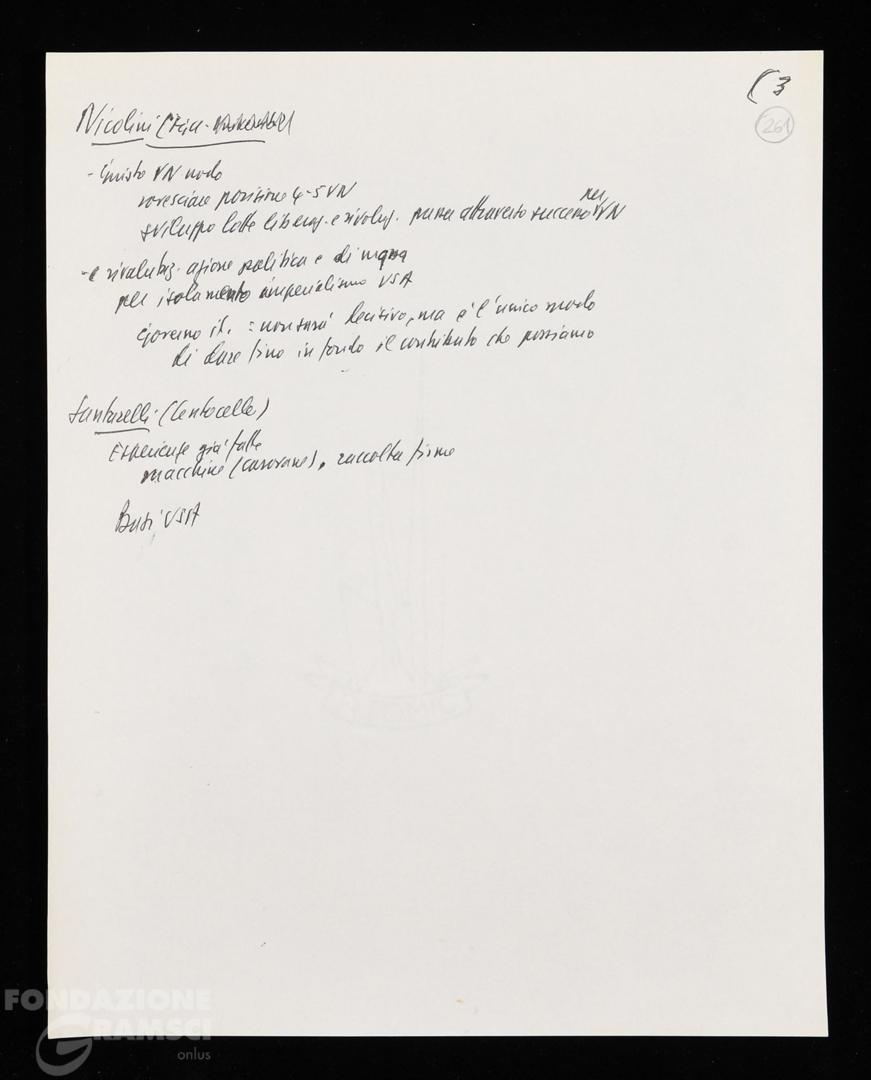 (3
261
Nicolini
- Giusto VN nodo
rovesciare posizione 4-5 VN
sviluppo lotte liberaz. e rivoluz. passa attraverso successo per VN
- e rivalutaz. azione politica e di massa
per isolamento imperialismo USA
Governo it. = non sarà decisivo, ma è l'unico modo
di dare fino in fondo il contributo che possiamo
Santarelli (Centocelle)
Esperienze già fatte
macchine (carovane), raccolta firme
Basi USA
FONDAZIONE
GRAMSCI
onlus